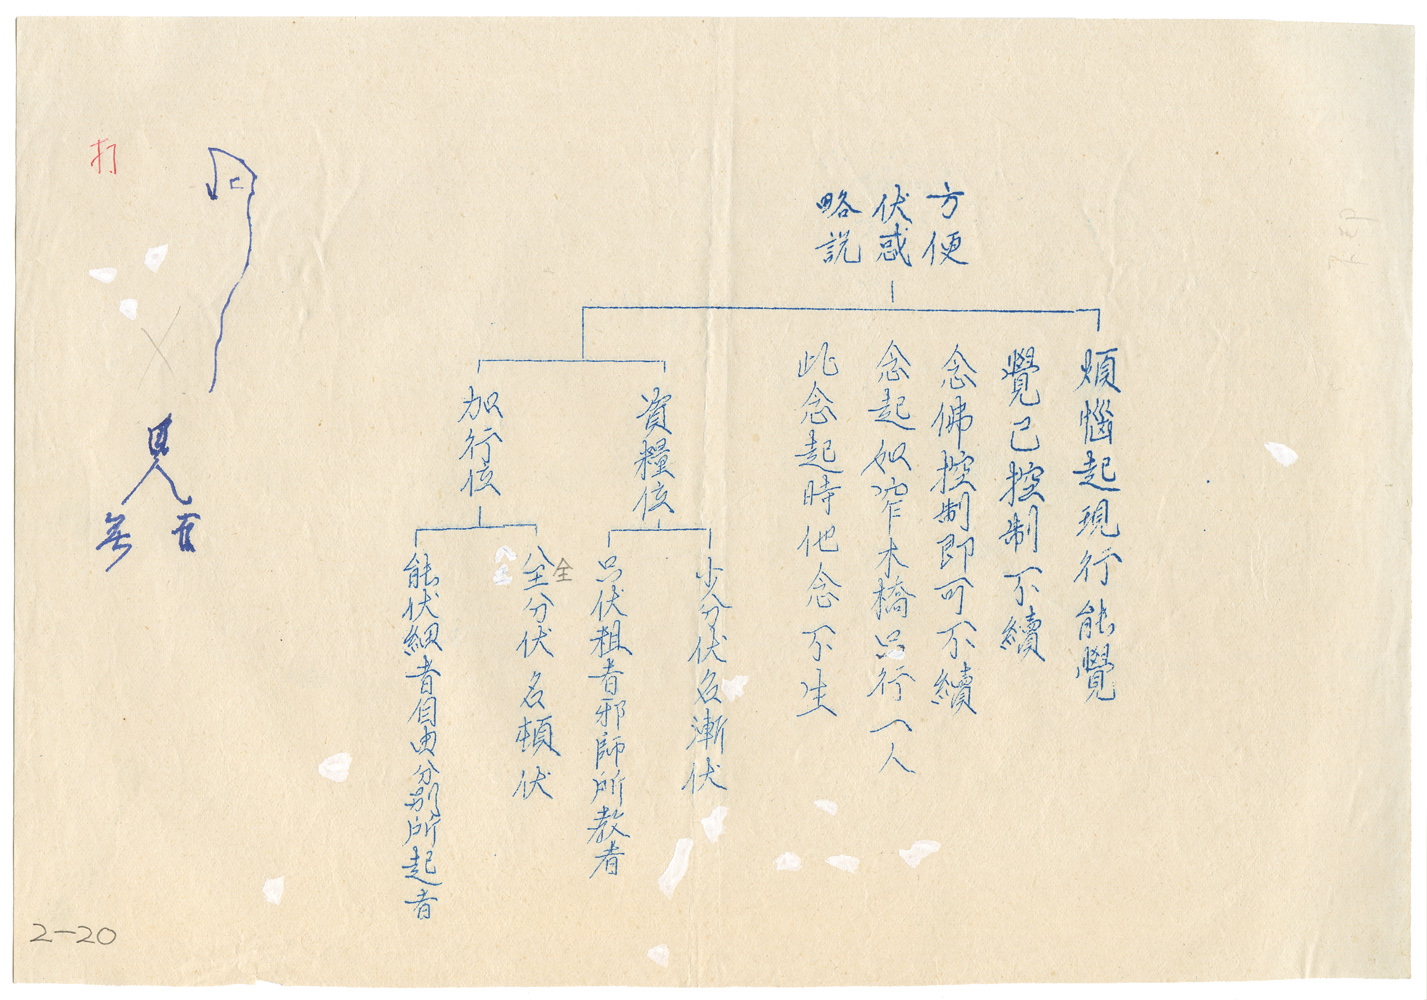 方便
伏惑
略說
煩惱起現行能覺
覺已控制不續
念佛控制即可不續
念起如窄木橋只行一人
此念起時他念不生
資糧位
少分伏名漸伏
只伏粗者邪師所教者
加行位
全分伏名頓伏
全
能伏細者自由分別所起者
打
見
有
無
2-20